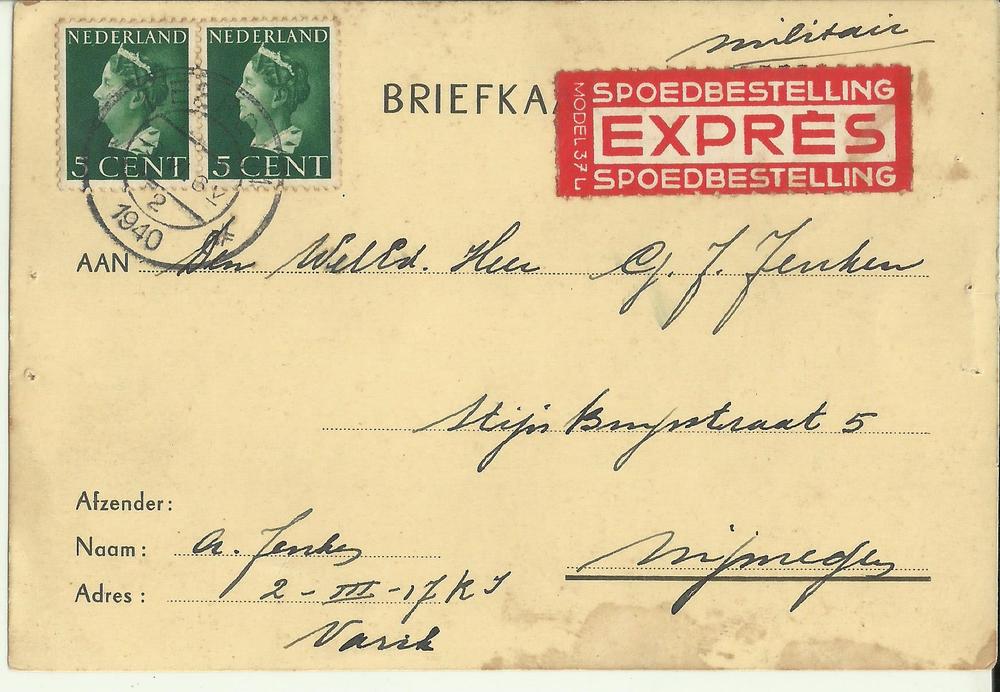 militair
NEDERLAND NEDERLAND
5 CENT 5 CENT
1940
BRIEFKAA
MODEL 37 L
SPOEDBESTELLING
EXPRÈS
SPOEDBESTELLING
AAN Den WelEd. Heer G. J. Jenken
Stijn Buysstraat 5
Afzender:
Naam: A. Jenken
Nijmegen
Adres: 2-III-17 R I
Varik